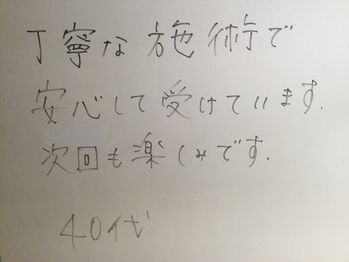 丁寧な施術で
安心して受けています.
次回も楽しみです.
40代